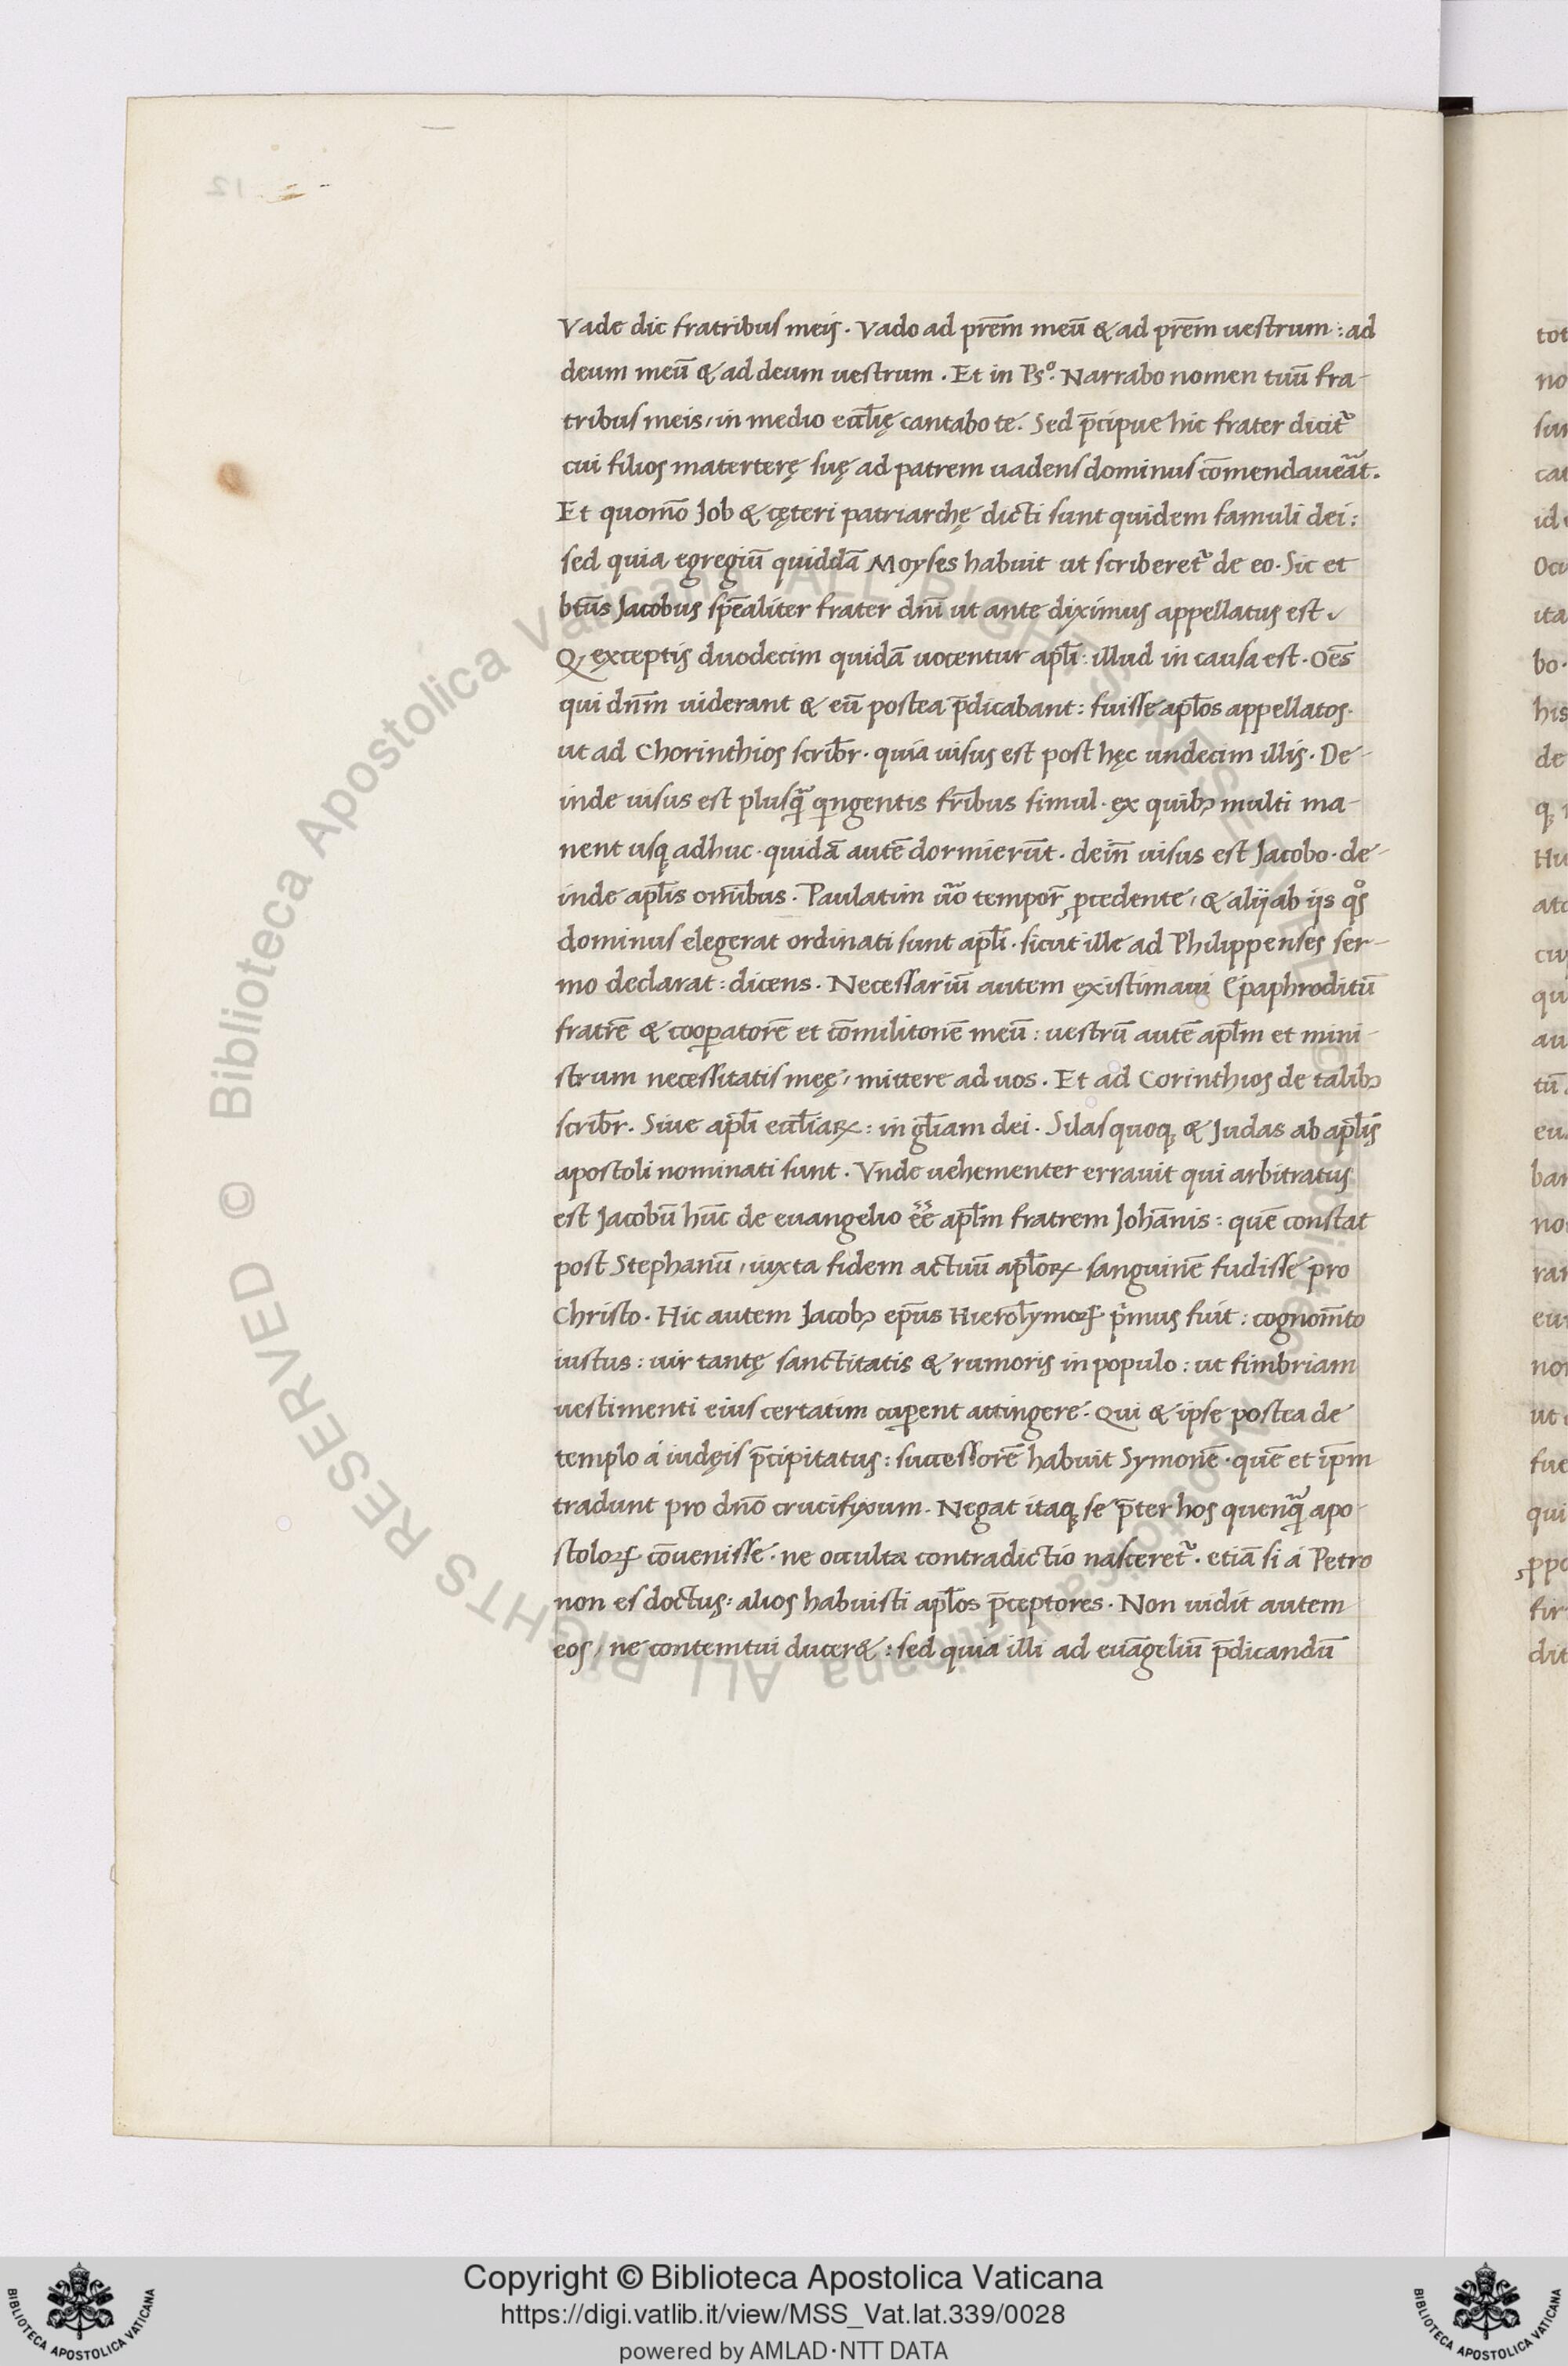 Vade dic fratribus meis. Vado ad prēm meū & ad prēm uestrum: ad
deum meū & ad deum uestrum. Et in Psº. Narrabo nomen tuū fra-
tribus meis, in medio eccl̄ię cantabo te. Sed p̄cipue hic frater dicit̃
cui filios materterę suę ad patrem uadens dominus cōmendaueãt.
Et quomō Job & cęteri patriarchę dicti sunt quidem famuli dei:
sed quia egregiū quiddā Moyses habuit ut scriberet̃ de eo. Sic et
btūs Jacobus spēaliter frater dnī ut ante diximus appellatus est.
Q exceptis duodecim quidā uocentur apl̄i: illud in causa est. Oēs
qui dnm̄ uiderant & eū postea p̄dicabant: fuisse apl̄os appellatos.
ut ad Chorinthios scribr̄. quia uisus est post hęc undecim illis. De-
inde uisus est plusq̃ qngentis fr̄ibus simul. ex quibꝫ multi ma-
nent usqꝫ adhuc. quidā autē dormierūt. dein̄ uisus est Jacobo. de-
inde apl̄is om̄ibus. Paulatim ũo tempor̄ ꝓcedente, & alij ab ijs qͦs
dominus elegerat ordinati sunt apl̄i. sicut ille ad Philippenses ser-
mo declarat: dicens. Necessariū autem existimaui Epaphroditū
fratrē & coop̄atorē et cōmilitonē meū: uestrū autē apl̄m et mini-
strum necessitatis meę, mittere ad uos. Et ad Corinthios de talibꝫ
scribr̄. Siue apl̄i eccl̄iaꝝ: in gl̄iam dei. Silas quoqꝫ & Judas ab apl̄is
apostoli nominati sunt. Vnde uehementer errauit qui arbitratus
est Jacobū hūc de euangelio ēē apl̄m fratrem Johānis: quē constat
post Stephanū, iuxta fidem actuū apl̄oꝝ sanguinē fudisse pro
Christo. Hic autem Jacobꝫ ep̄us Hierol̄ymoꝝ p̄mus fuit: cognom̄to
iustus: uir tantę sanctitatis & rumoris in populo: ut fimbriam
uestimenti eius certatim cup̄ent attingere. Qui & ipse postea de
templo á iudęis p̄cipitatus: successorē habuit Symonē. quē et ip̄m
tradunt pro dnō crucifixum. Negat itaqꝫ se p̄ter hos quenq̃ apo-
stoloꝝ cōuenisse. ne occulta contradictio nasceret̃. etiā si á Petro
non es doctus: alios habuisti apl̄os p̄ceptores. Non uidit autem
eos, ne contemtui ducer&: sed quia illi ad euāgeliū p̄dicandū
Copyright © Biblioteca Apostolica Vaticana
https://digi.vatlib.it/view/MSS_Vat.lat.339/0028
powered by AMLAD·NTT DATA